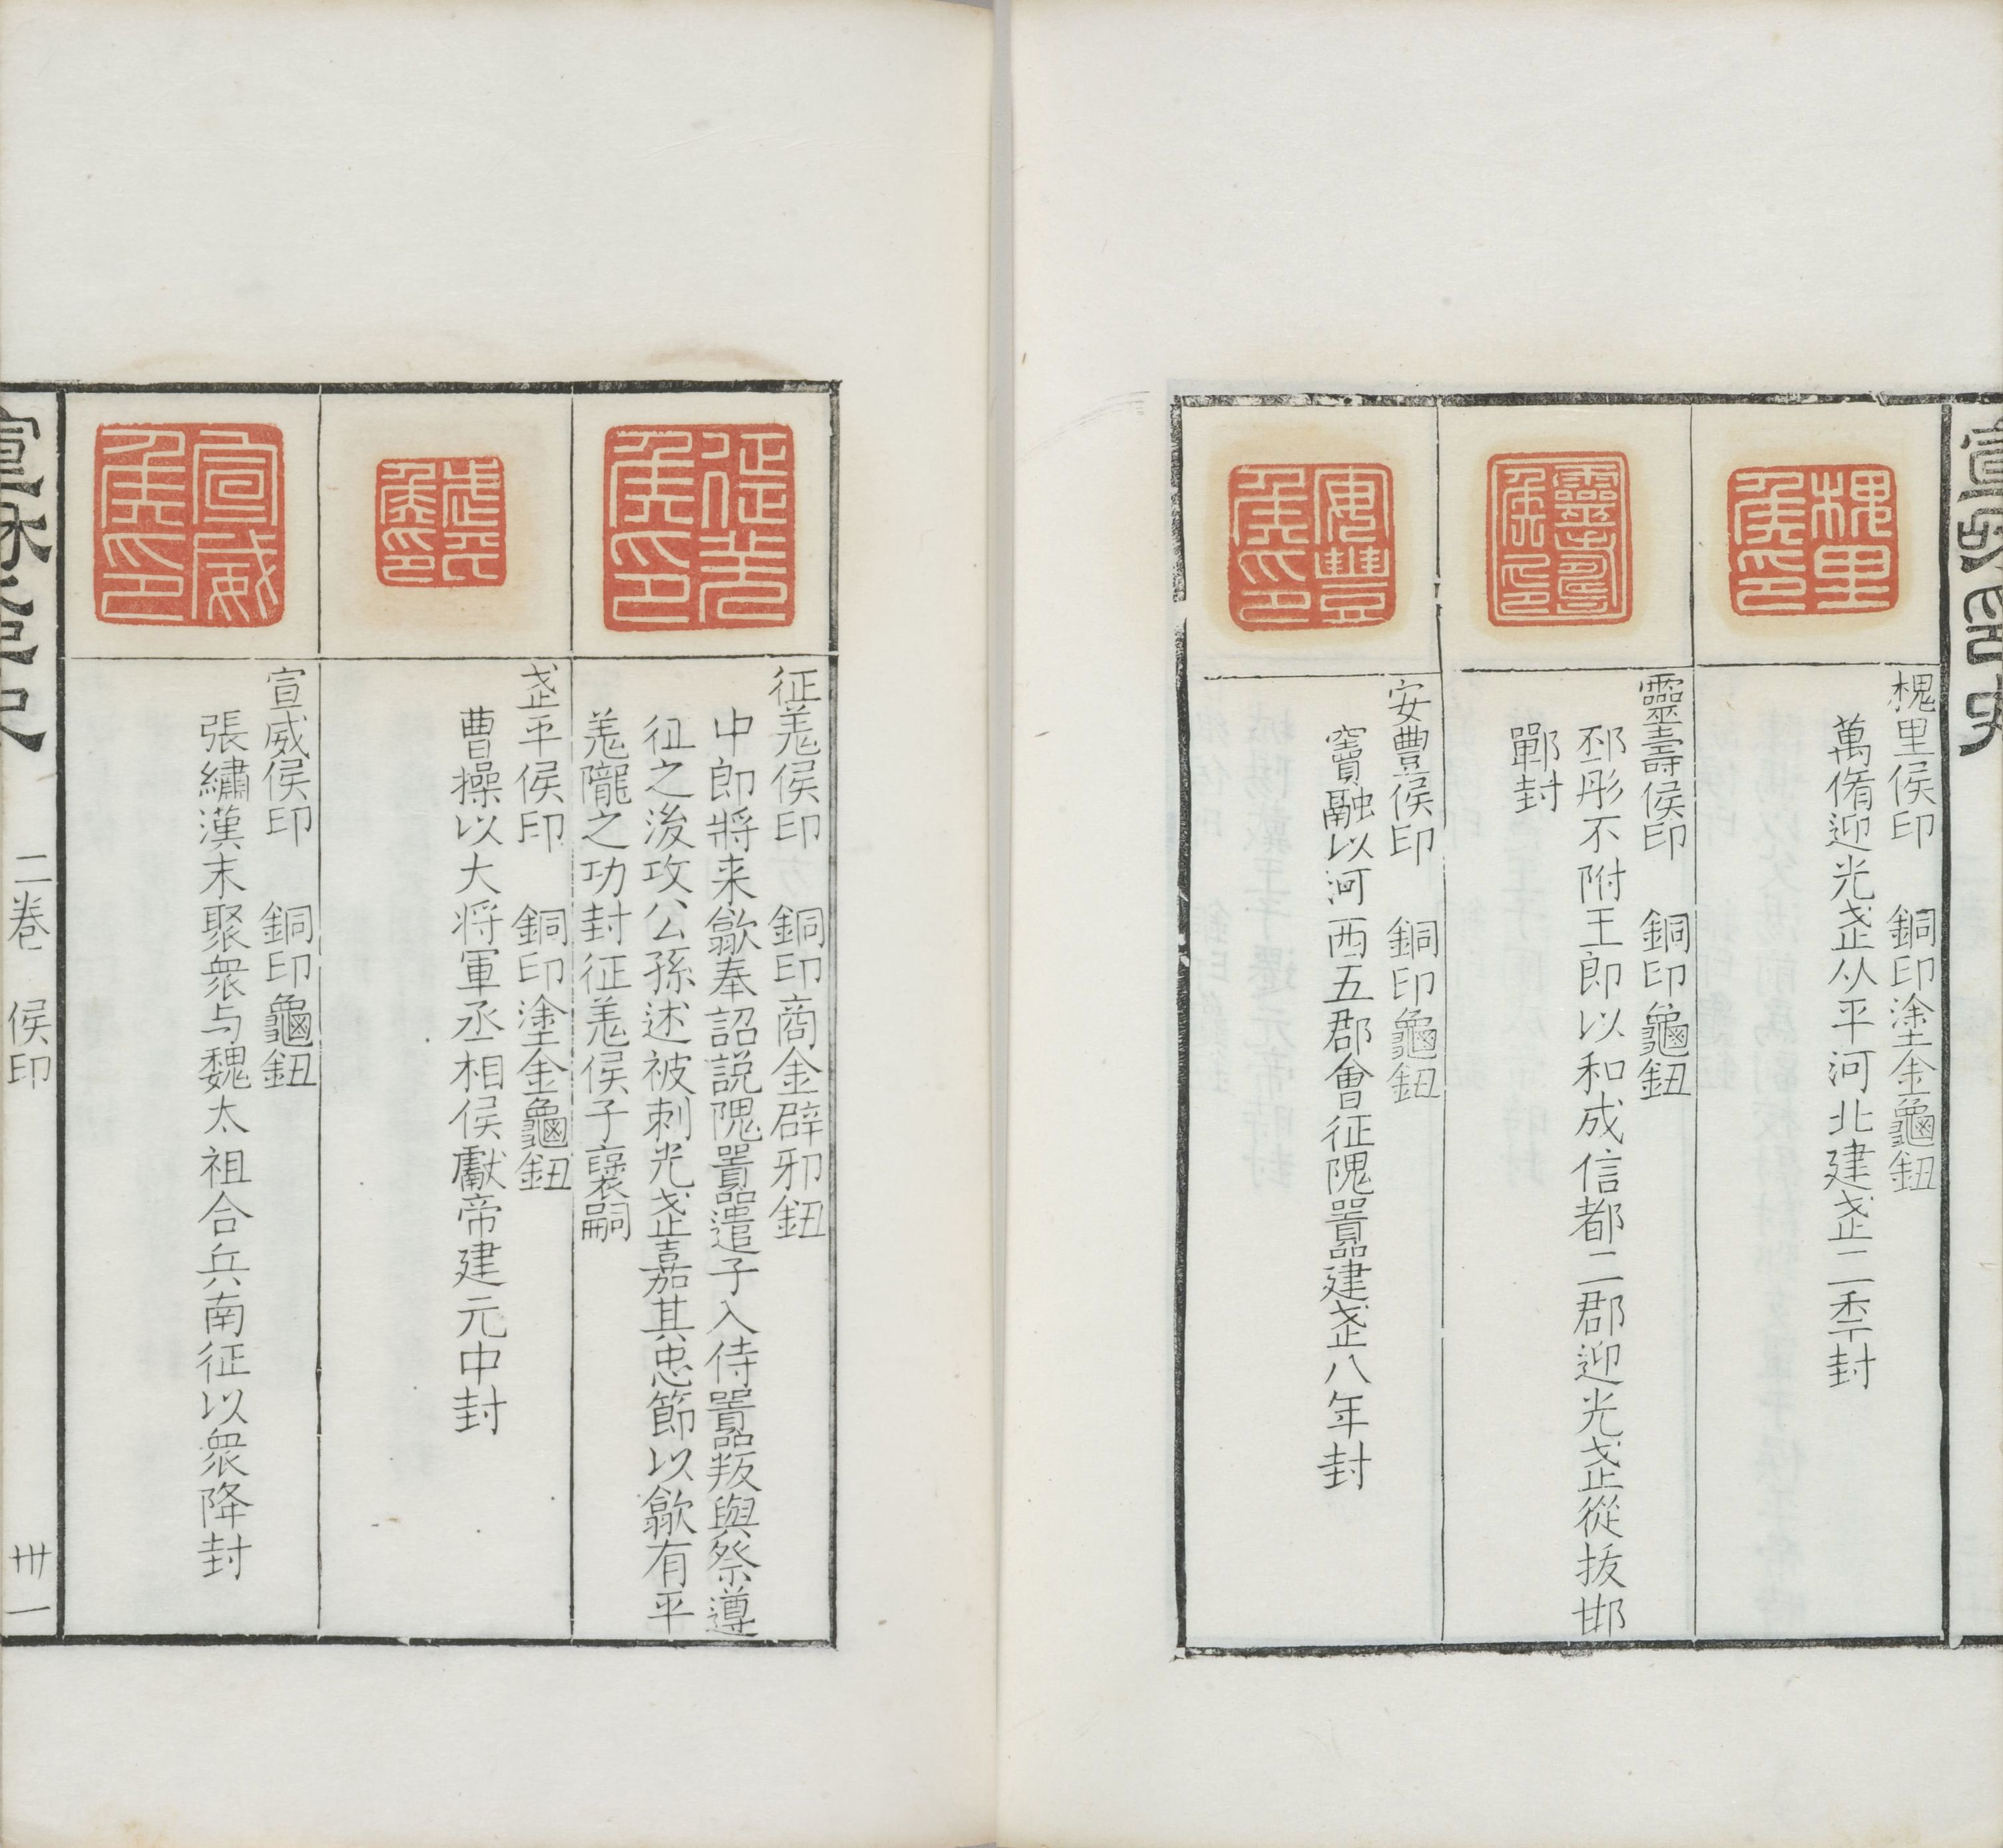 宣龢印史
槐里侯印
槐里侯印　銅印塗金龜鈕
萬脩迎光武从平河北建武二秊封
靈壽侯印
靈壽侯印　銅印龜鈕
邳彤不附王郎以和成信都二郡迎光武從拔邯
鄲封
安豐侯印
安豐侯印　銅印龜鈕
竇融以河西五郡會征隗囂建武八年封
征羌侯印
征羌侯印　銅印商金辟邪鈕
中郎將来歙奉詔説隗囂遣子入侍囂叛與祭遵
征之後攻公孫述被刺光武嘉其忠節以歙有平
羌隴之功封征羌侯子襃嗣
武平侯印
武平侯印　銅印塗金龜鈕
曹操以大将軍丞相侯獻帝建元中封
宣威侯印
宣威侯印　銅印龜鈕
張繡漢末聚衆与魏太祖合兵南征以衆降封
宣龢印史　二卷　侯印　卅一